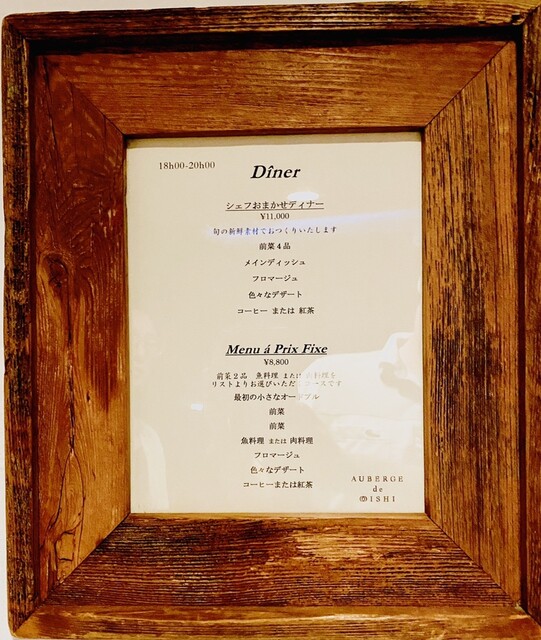 18h00-20h00
Dîner
シェフおまかせディナー
¥11,000
旬の新鮮素材でおつくりいたします
前菜4品
メインディッシュ
フロマージュ
色々なデザート
コーヒー または 紅茶
Menu á Prix Fixe
¥8,800
前菜2品 魚料理 または 肉料理を
リストよりお選びいただくコースです
最初の小さなオードブル
前菜
前菜
魚料理 または 肉料理
フロマージュ
色々なデザート
コーヒーまたは紅茶
AUBERGE
de
OISHI